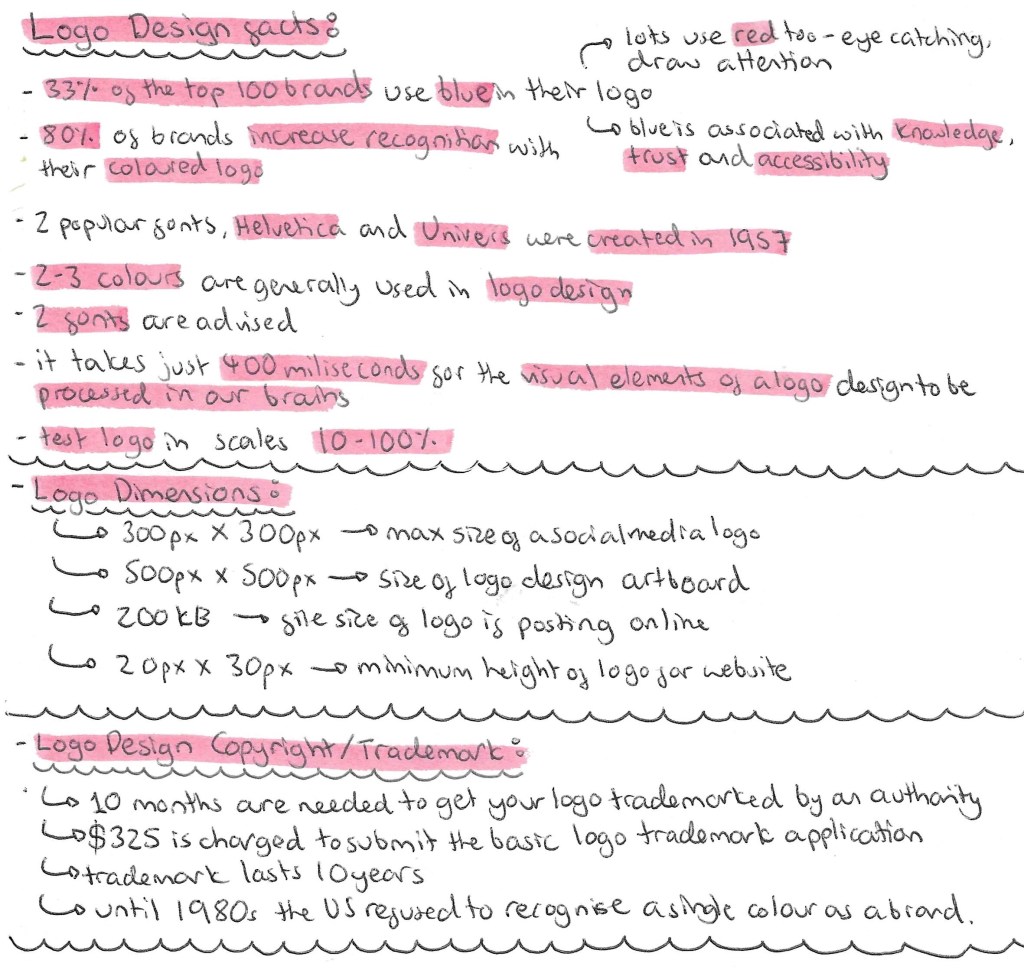 Logo Design facts:
lots use red too - eye catching,
draw attention
- 33% of the top 100 brands use blue in their logo
blue is associated with knowledge,
trust and accessibility
- 80% of brands increase recognition with
their coloured logo
- 2 popular fonts, Helvetica and Univers were created in 1957
- 2-3 colours are generally used in logo design
- 2 fonts are advised
- it takes just 400 miliseconds for the visual elements of a logo design to be
processed in our brains
- test logo in scales 10-100%
- Logo Dimensions:
300px x 300px → max size of a social media logo
500px x 500px → size of logo design artboard
200kB → file size of logo if posting online
20px x 30px → minimum height of logo for website
- Logo Design Copyright/Trademark:
10 months are needed to get your logo trademarked by an authority
$325 is charged to submit the basic logo trademark application
trademark lasts 10 years
until 1980s the US refused to recognise a single colour as a brand.